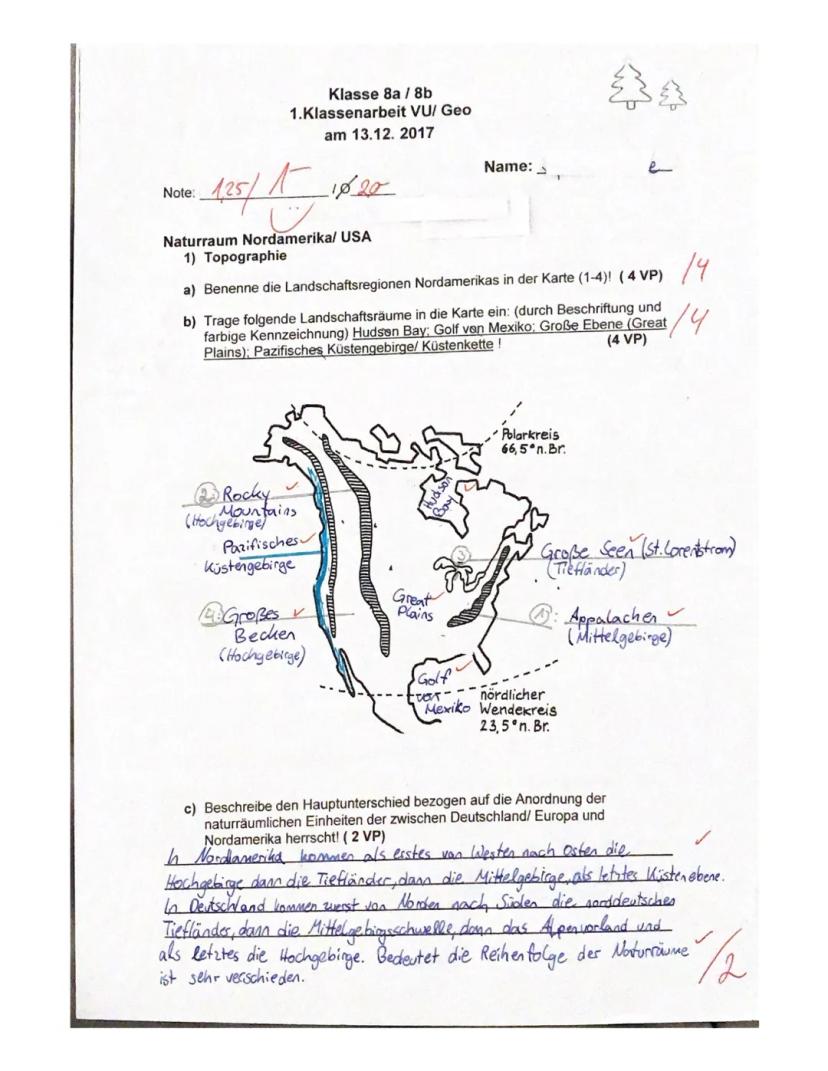 Klasse 8a / 8b
1.Klassenarbeit VU/ Geo
am 13.12. 2017
Name:
Note: 1,25/ 1-
Naturraum Nordamerika/ USA
1) Topographie
a) Benenne die Landschaftsregionen Nordamerikas in der Karte (1-4)! ( 4 VP) /4
b) Trage folgende Landschaftsräume in die Karte ein: (durch Beschriftung und
farbige Kennzeichnung) Hudson Bay; Golf von Mexiko; Große Ebene (Great /4
Plains); Pazifisches Küstengebirge/ Küstenkette ! (4 VP)
Polarkreis
66,5° n. Br.
Hudson
Bay
2. Rocky
Mountains
(Hochgebirge)
Pazifisches
Küstengebirge
3
Große Seen (St. Lorentstrom)
(Tiefländer)
Great
Plains
4. Großes
Becken
(Hochgebirge)
1: Appalachen
(Mittelgebirge)
Golf
von
Mexiko
nördlicher
Wendekreis
23,5° n. Br.
c) Beschreibe den Hauptunterschied bezogen auf die Anordnung der
naturräumlichen Einheiten der zwischen Deutschland/ Europa und
Nordamerika herrscht! ( 2 VP)
In Nordamerika kommen als erstes von Westen nach Osten die
Hochgebirge dann die Tiefländer, dann die Mittelgebirge, als letztes Küstenebene.
In Deutschland kommen zuerst von Norden nach Süden die norddeutsches
Tiefländer, dann die Mittelgebirgsschwelle, dann das Alpenvorland und
als letztes die Hochgebirge. Bedeutet die Reihenfolge der Naturräume
ist sehr verschieden.
/2